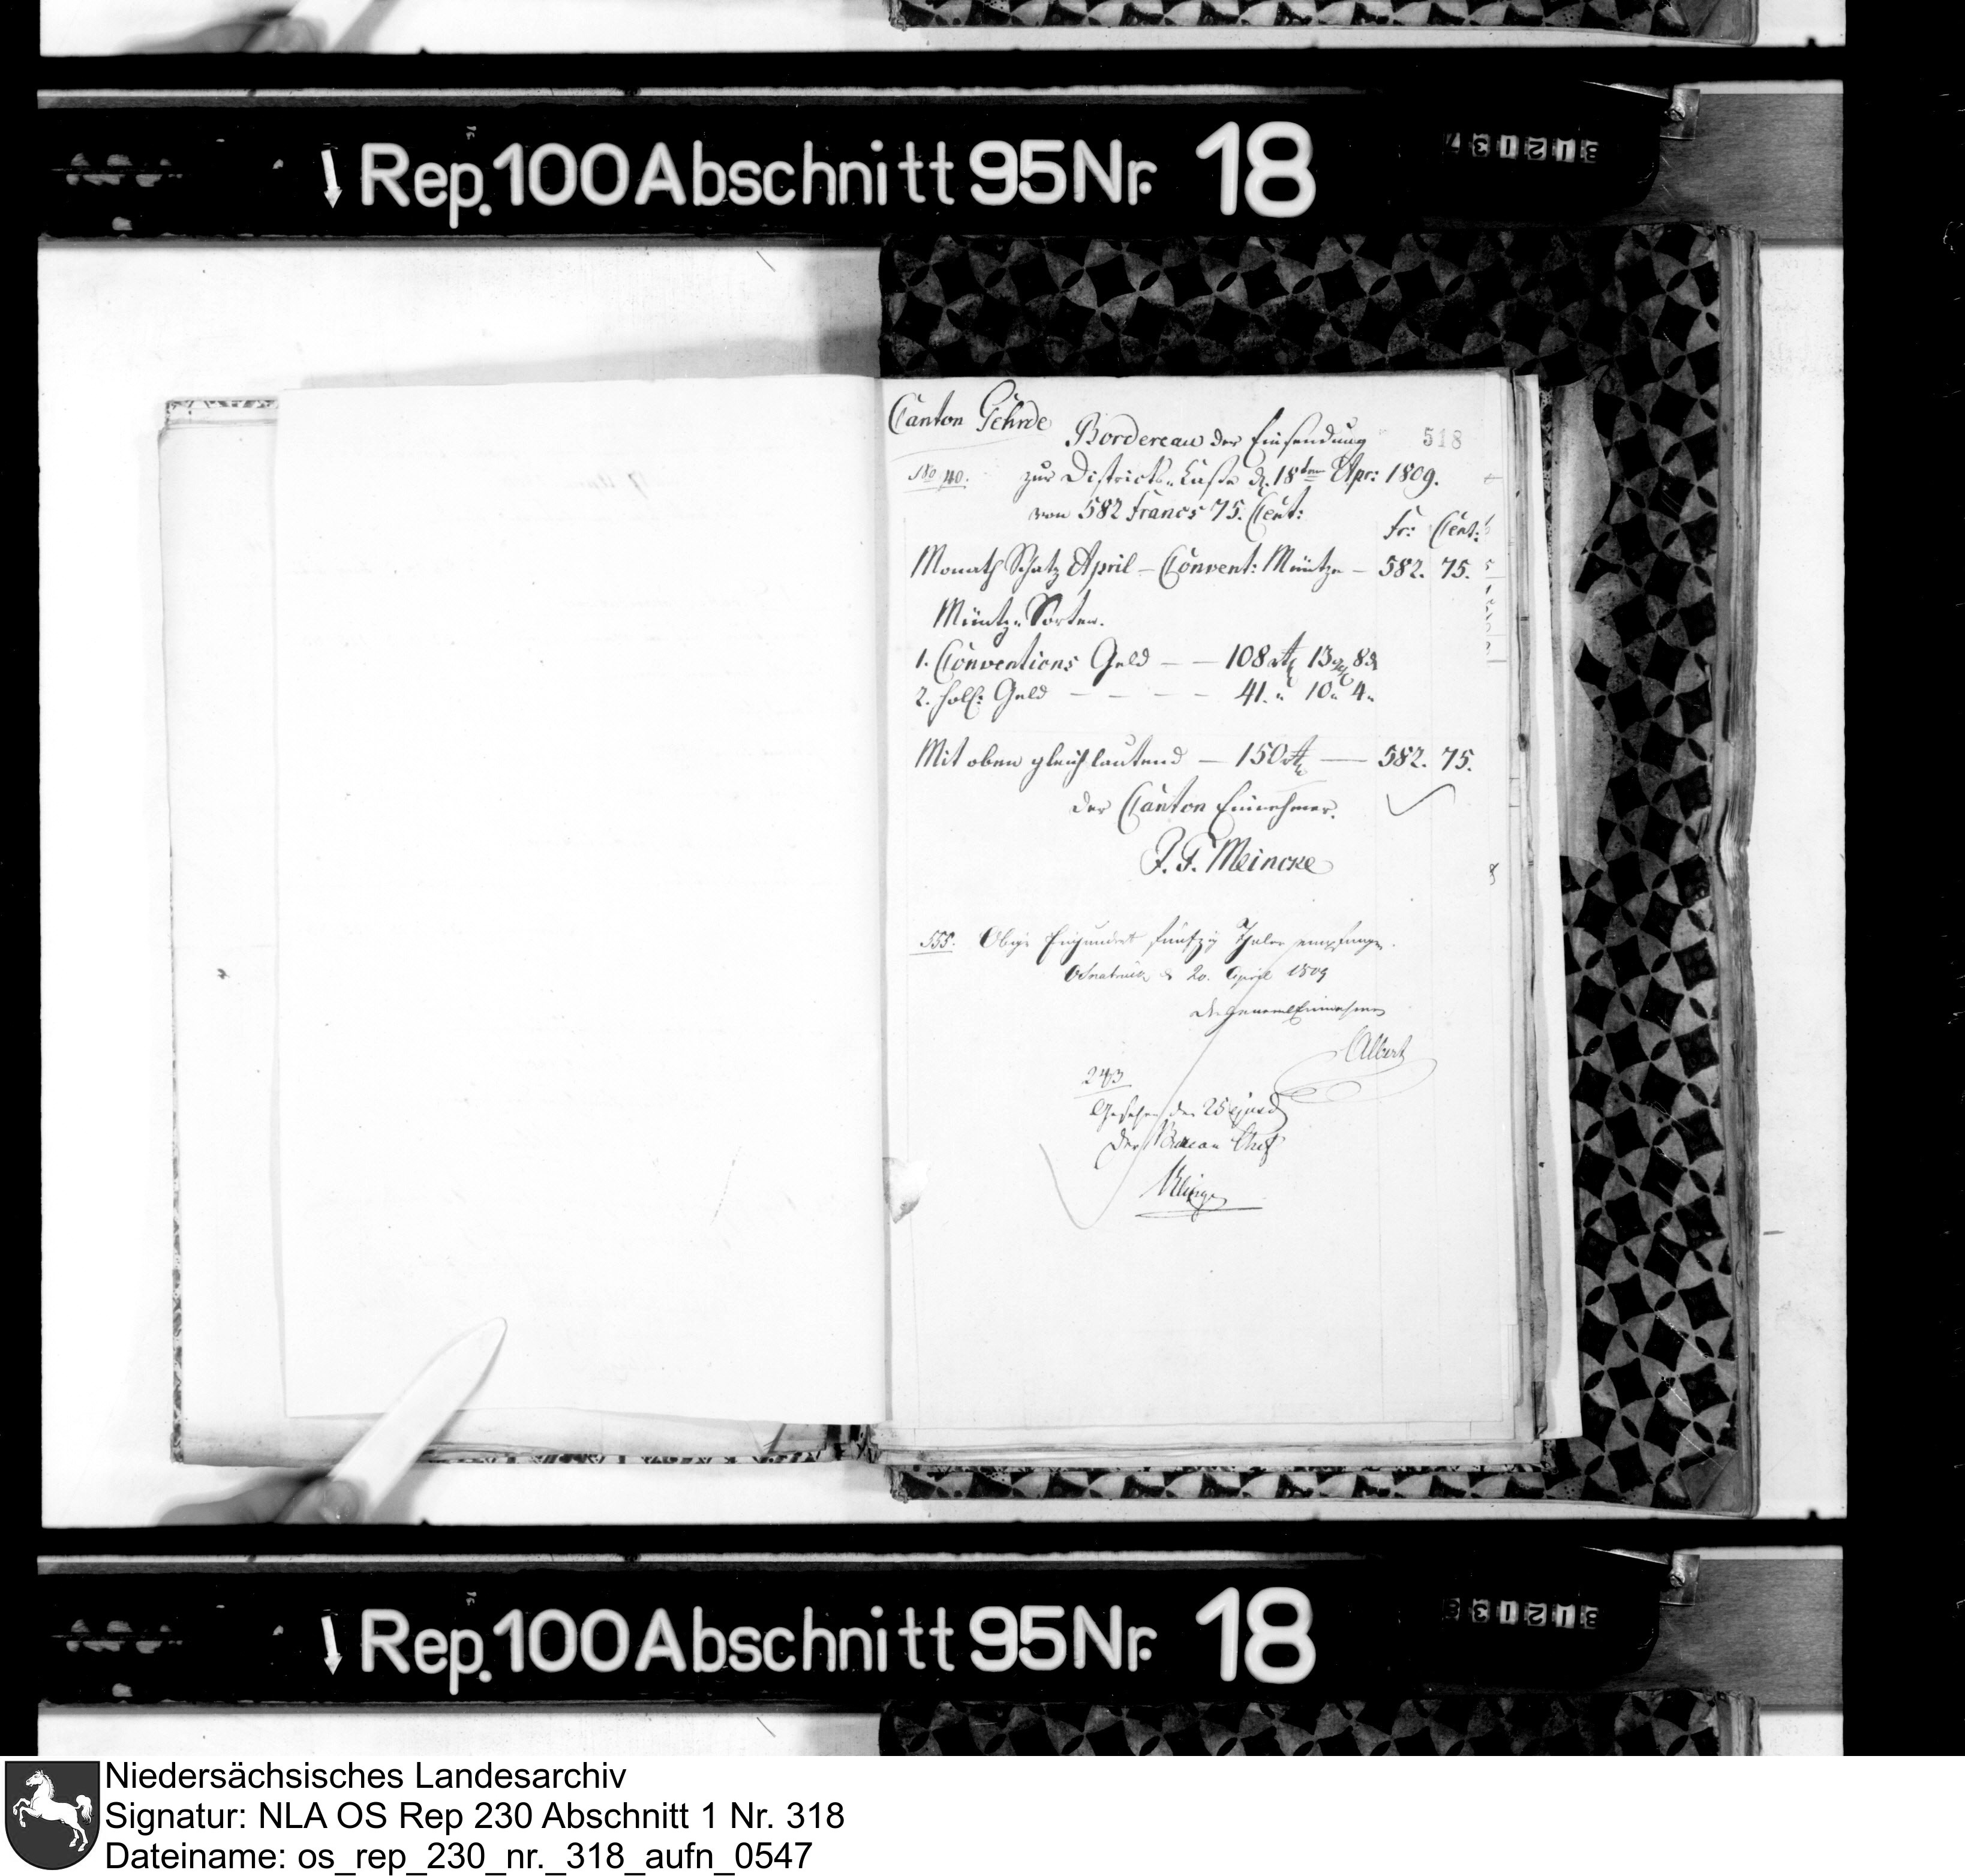 Rep. 100 Abschnitt 95 Nr. 18
Canton Gehrde
Bordereau der Einsendung 518
No 40. zur Districts-Casse d. 18ten Apr: 1809.
von 582 Francs 75. Cent:
Fr: Cent:
Monath Schatz April – Convent: Müntze – 582. 75.
Müntz-Sorten.
1. Conventions Geld – – 108 rt 13 ggr 8 d
2. holl: Geld – – – – 41. " 10 " 4 "
Mit oben gleichlautend – 150 rt — 582. 75.
der Canton Einnehmer.
J. F. Meincke
555. Obige Einhundert fünfzig Thaler empfangen.
Osnabrück d 20. April 1809
Der General Einnehmer
Albert
243
Gesehen den 25 ejusd
Der Bureau Chef
Klinge
Rep. 100 Abschnitt 95 Nr. 18
Niedersächsisches Landesarchiv
Signatur: NLA OS Rep 230 Abschnitt 1 Nr. 318
Dateiname: os_rep_230_nr._318_aufn_0547